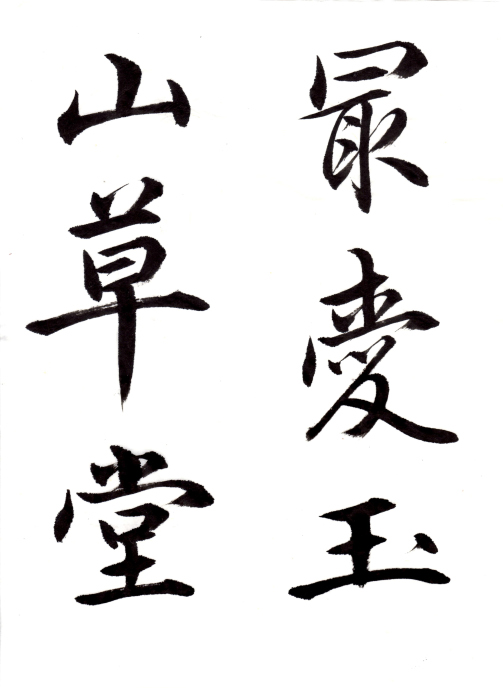 最愛玉
山草堂